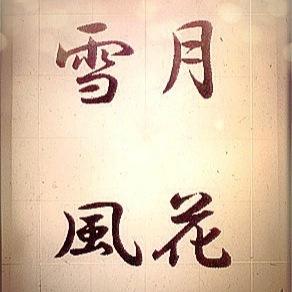 月花
雪風